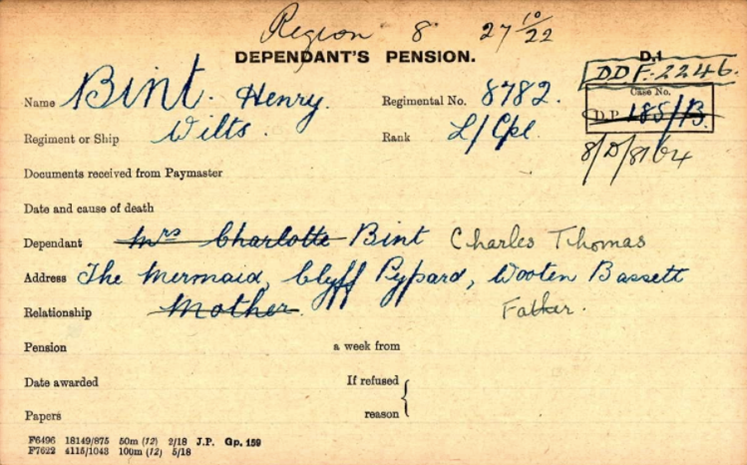 Region 8 27 10/22
DEPENDANT'S PENSION.
D.1
DDF. 2246.
Name Bint. Henry. Regimental No. 8782.
Case No.
D.P. 185/B.
Regiment or Ship Wilts. Rank L/Cpl.
8/D/8164
Documents received from Paymaster
Date and cause of death
Dependant Mrs Charlotte Bint Charles Thomas
Address The Mermaid, Clyff Pypard, Wooten Bassett
Relationship Mother Father.
Pension a week from
Date awarded If refused
Papers reason
F6496 18149/875 50m (12) 2/18 J.P. Gp. 159
F7622 4115/1043 100m (12) 5/18